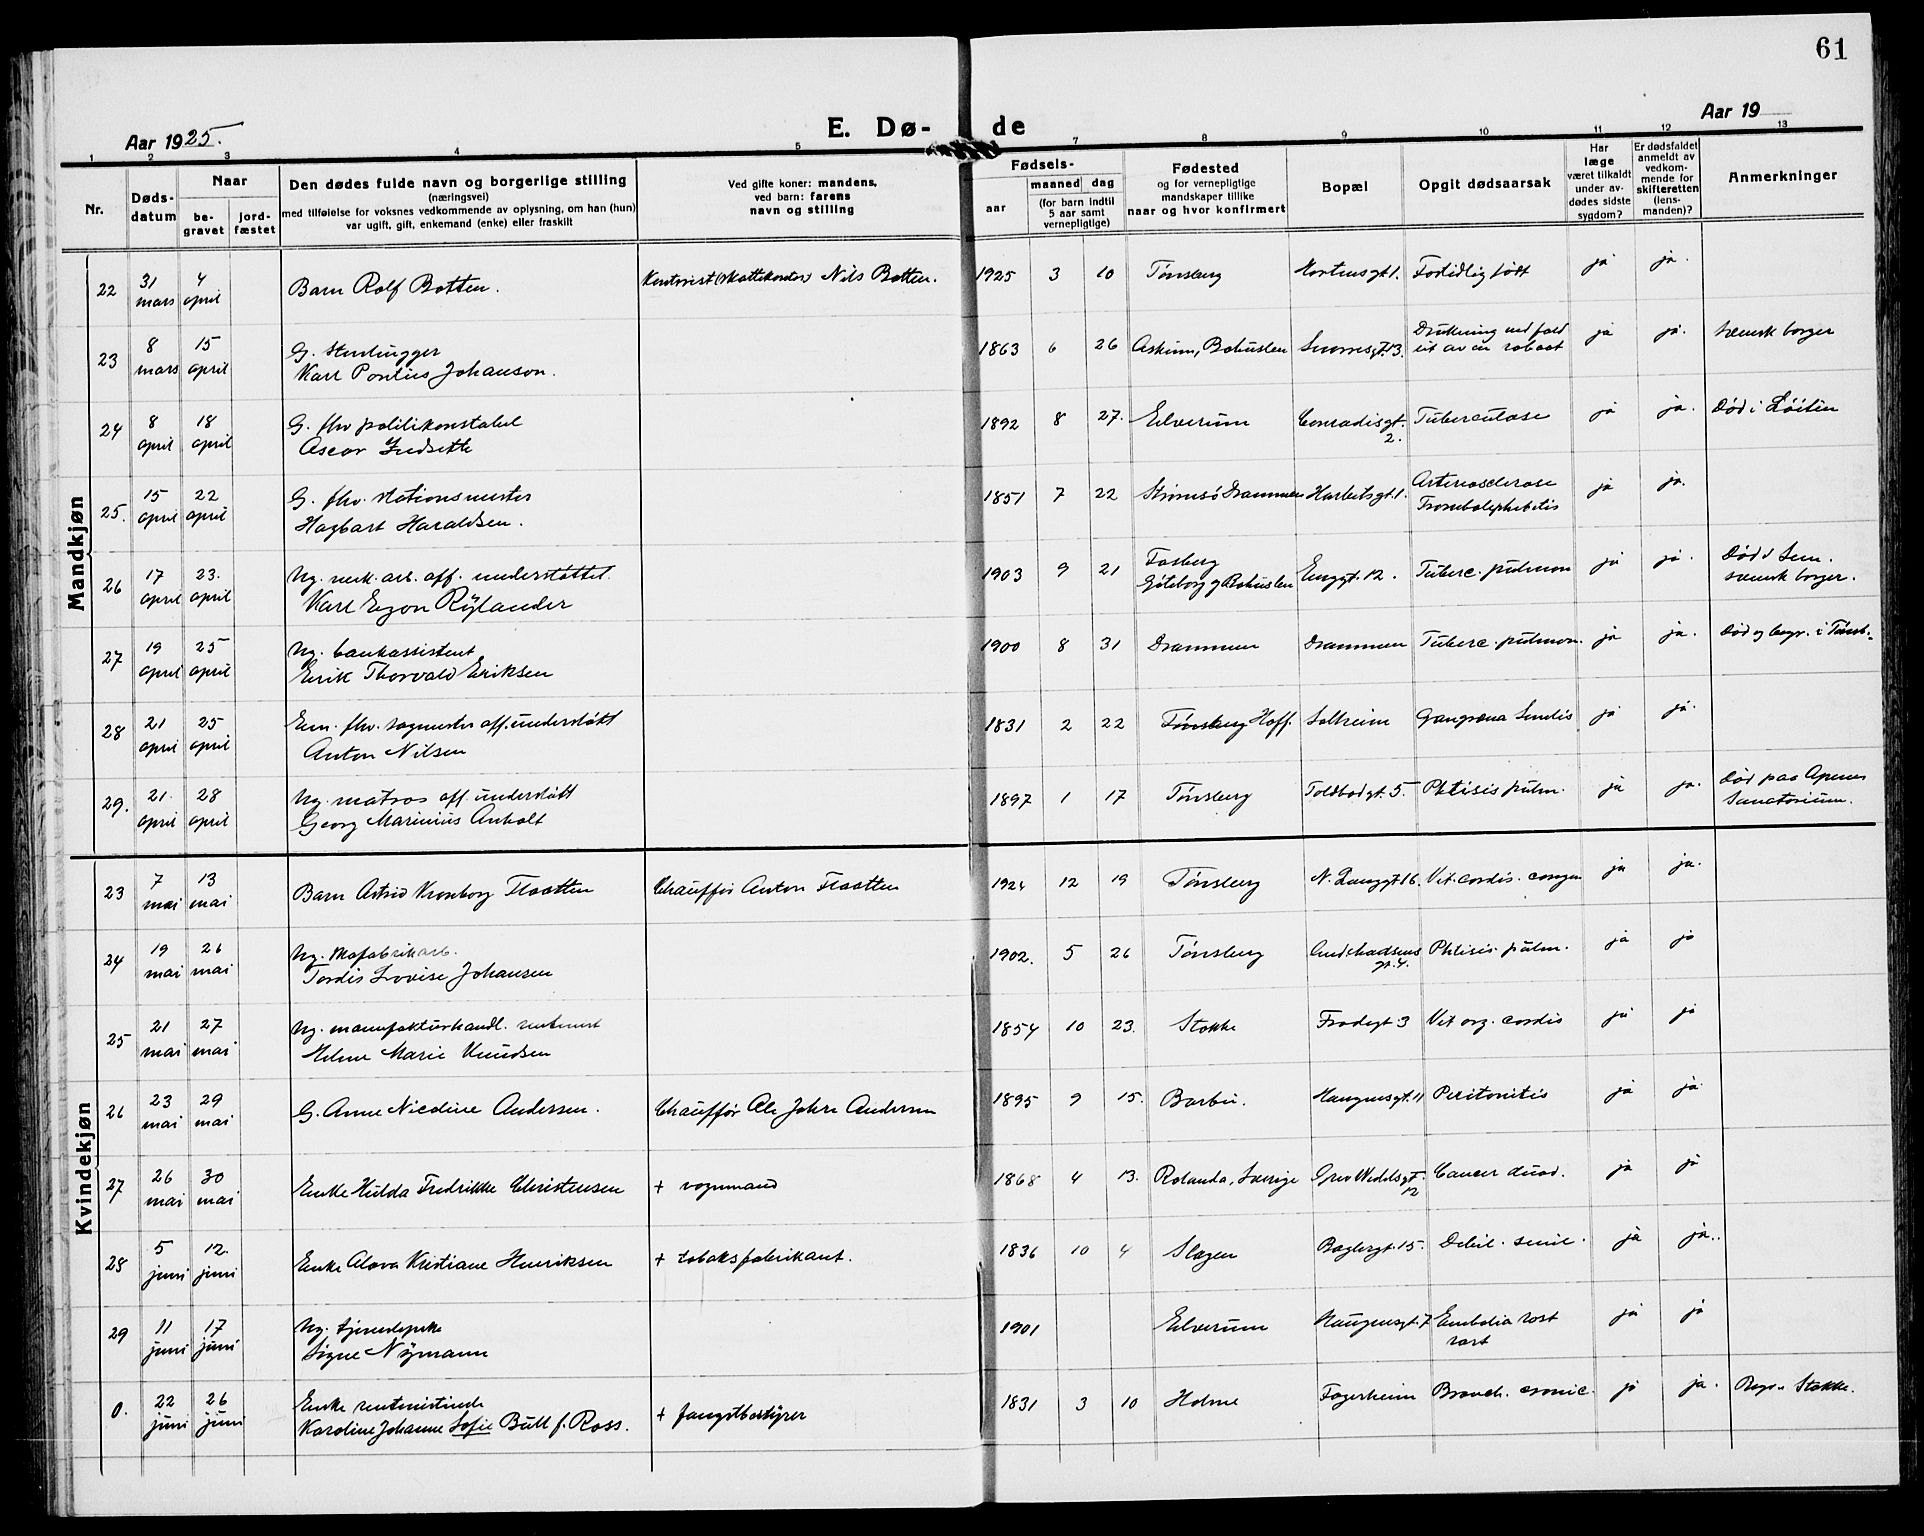 61
Aar 1925.
E. Dø-
de
Aar 19
1 2 3 4 5 7 8 9 10 11 12 13
Nr.
Døds-
datum
Naar
be-
gravet
jord-
fæstet
Den dødes fulde navn og borgerlige stilling
(næringsvei)
med tilføielse for voksnes vedkommende av oplysning, om han (hun)
var ugift, gift, enkemand (enke) eller fraskilt
Ved gifte koner: mandens,
ved barn: farens
navn og stilling
Fødsels-
aar
maaned dag
(for barn indtil
5 aar samt
vernepligtige)
Fødested
og for vernepligtige
mandskaper tillike
naar og hvor konfirmert
Bopæl
Opgit dødsaarsak
Har
læge
været tilkaldt
under av-
dødes sidste
sygdom?
Er dødsfaldet
anmeldt av
vedkom-
mende for
skifteretten
(lens-
manden)?
Anmerkninger
Mandkjøn
22 31 mars 4 april Barn Rolf Botten. Kontorist (skattekontor) Nils Botten. 1925 3 10 Tønsberg Mortensgt 1. Fortidlig født ja ja.
23 8 mars 15 april G. Stenhugger
Karl Pontius Johanson. 1863 6 26 Askum, Bohuslen Snorresgt. 13. Drukning ved fald
ut av en robaat ja ja. svensk borger
24 8 april 18 april G. fhv politikonstabel
Oscar Indsette 1892 8 27. Elverum Conradisgt.
2. Tuberculose ja ja. Død i Løiten
25. 15 april 22 april G. fhv. stationsmester
Hagbart Haraldsen. 1851 7 22 Strømsø Drammen Harbitsgt. 1. Arteriosclerose
Trombolephebitis ja ja.
26 17 april 23. april Ug. verk. arb. off. understøttet.
Karl Egon Rylander 1903 9 21 Fosberg
Gøteborg og Bohuslen Enggt. 12. Tuberc. pulmon ja ja. Død i Sem.
svensk borger.
27 19 april 25 april Ug. bankassistent
Erik Thorvald Eriksen 1900 8 31 Drammen Drammen Tuberc. pulmon. ja ja. Død og begr. i Tønsb.
28 21 april 25 april Em. fhv. vognmester off. understøtt
Anton Nilsen 1831 2 22 Tønsberg Hoff. Solheim Gangræna Senilis ja ja.
29. 21. april 28 april Ug. matros off. understøtt
Georg Marinius Anholt 1897 1 17 Tønsberg Toldbodgt. 5. Phtisis pulm. ja ja. Død paa Apenes
Sanatorium.
Kvindekjøn
23 7 mai 13 mai Barn Astrid Kronborg Flaatten Chauffør Anton Flaatten 1924 12 19 Tønsberg N. Langgt 16. Vit. cordis. congen ja ja.
24 19 mai 26 mai Ug. skofabrikarb.
Tordis Lovise Johansen 1902. 5 26 Tønsberg
gt. 4. Phtisis. pulm. ja ja
25 21 mai 27 mai Ug. manufakturhandl.
Helene Marie Knudsen 1854 10 23. Stokke Frodegt 3 Vit org. cordis ja ja
26 23 mai 29 mai G. Anne Nicoline Andersen. Chauffør Ole Johan Andersen 1895 9 15. Barbu. Haugensgt. 11 Peritonitis ja ja.
27 26 mai 30 mai Enke Hulda Fredrikke Christensen + vognmand 1868 4 13. Rolanda, Sverige Grev Wedelsgt.
12 Cancer duod. ja ja
28 5 juni 12. juni Enke Alova Kristiane Henriksen + tobaksfabrikant. 1836 10 4 Slagen Baglergt. 15. Debil. senil. ja ja.
29 11 juni 17 juni Ug. tjenestepike
Signe Nymann 1901 Elverum Haugensgt. 7 Embolia post
part ja ja
0. 22 juni 26 juni Enke rentenistinde
Karoline Johanne Sofie Bull f. Ross. + fangstbestyrer 1831 3 10 Holme Fagerheim Bronch. cronic. ja ja. Begr. Stokke.